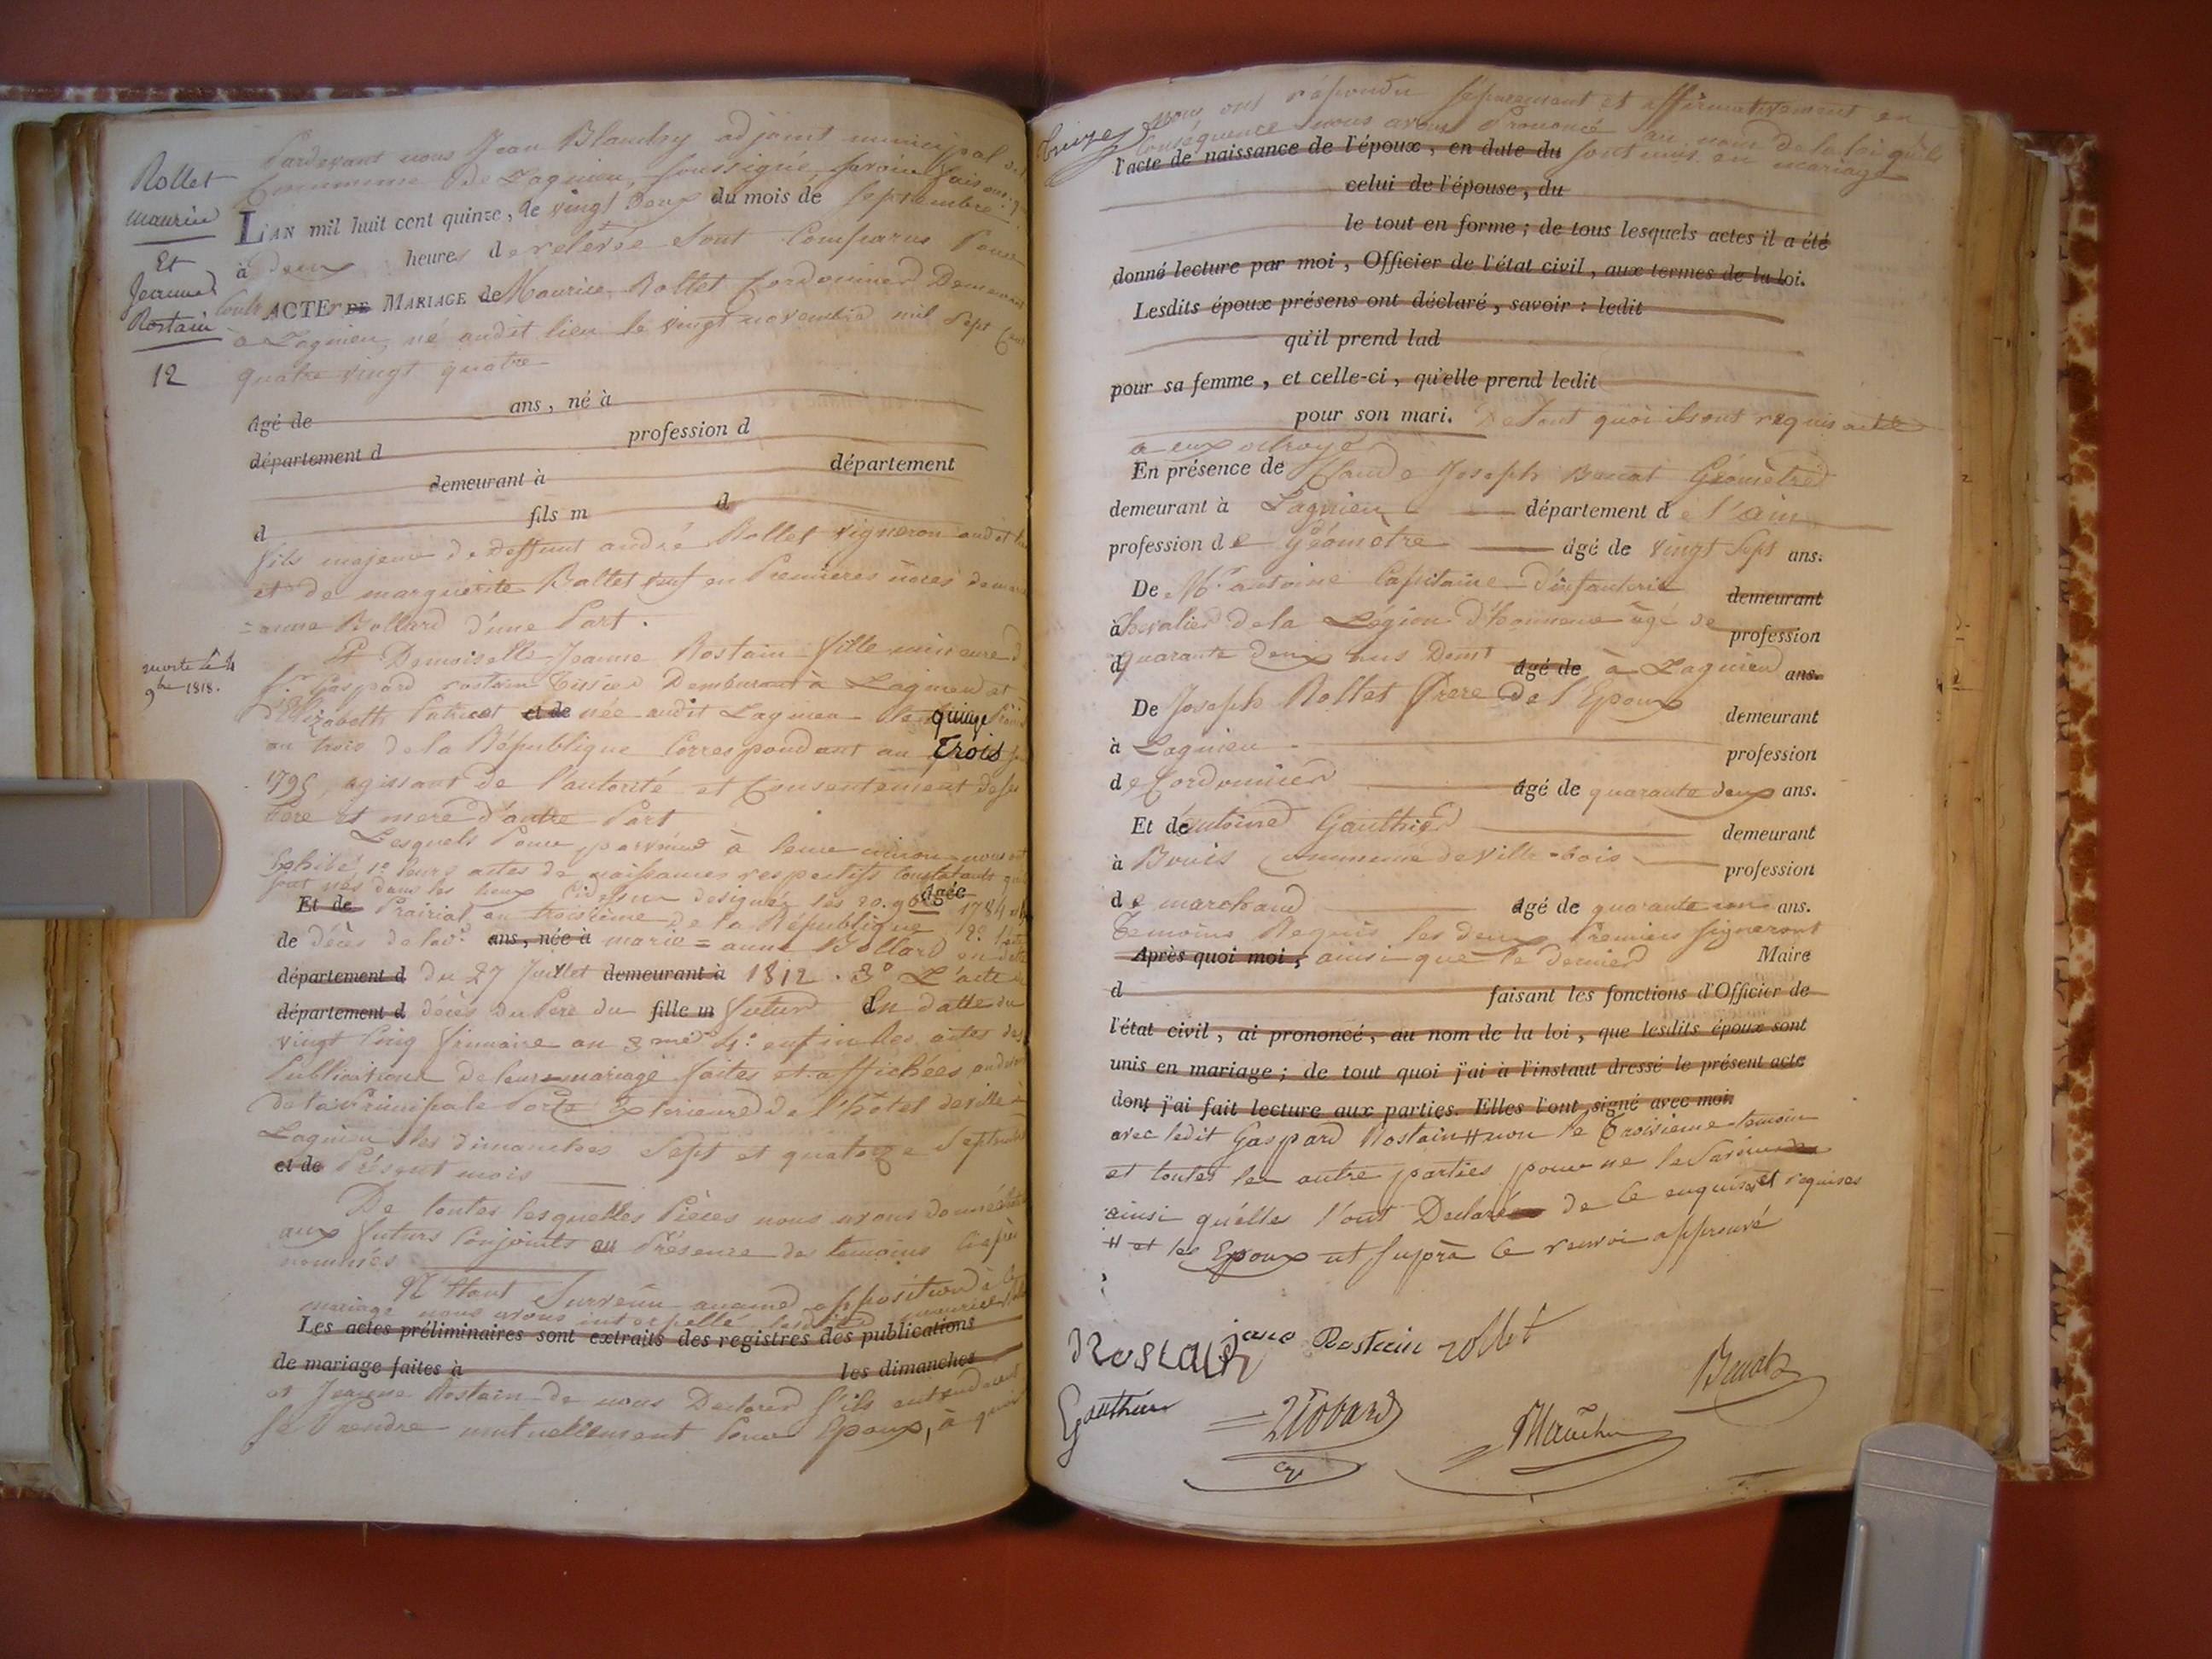 Rollet
maurice
Et
Jeanne
Rostain
12
morte le 4
9bre 1818.
Pardevant nous Jean Blanchy adjoint municipal de
Commune de Lagnieu, soussigné, savoir faisons q
L'AN mil huit cent quinze, le vingt deux du mois de septembre
à deux heures de relevée sont Comparus Pour
ACTE DE MARIAGE de Maurice Rollet Cordonnier Demeurant
à Lagnieu, né audit lieu le vingt novembre mil sept Cent
quatre vingt quatre
âgé de ans, né à
département d profession d
demeurant à département
d fils m d
fils majeur de deffunt andré Rollet vigneron audit lieu
et de marguerite Rollet veuf en Premieres noces de marie
= anne Bollard d'une Part.
Et Demoiselle Jeanne Rostain fille mineure d
Sr Gaspard rostain Tissier Demeurant à Lagnieu et
d'Elizabeth Patricot et de née audit Lagnieu le quinze Prairial
an trois de la République Correspondant au Trois
1795, agissant de l'autorité et Consentement de ses
Père et mere d'autre Part
Lesquels Pour parvenir à leur union nous ont
Exhibés 1º leurs actes de naissances respectifs Constatants qu'ils
sont nés dans les lieux cidessus designés les 20. 9bre âgée 1784 et
Et de Prairial an troisième de la République 2º l'acte
de décès de lad. ans, née à marie = anne Bollard en date
département d du 27 Juillet demeurant à 1812. 3º L'acte de
département d décès Du Pere du fille m futur d En datte du
vingt Cinq frimaire an 3me 4º enfin les actes des
Publications de leur mariage faites et affichées audevant
de la Principale Porte Exterieure de l'hôtel de ville à
Lagnieu les dimanches sept et quatorze Septembre
et de Présent mois
De toutes lesquelles Pièces nous avons donné lecture
aux futurs Conjoints en Présence des temoins ci après
nommés
N'Etant Survenu aucune opposition à ce
mariage nous avons interpellé lesdits maurice Rollet
Les actes préliminaires sont extraits des registres des publications
de mariage faites à les dimanches
et Jeanne Rostain de nous Declarer s'ils entendaient
se Prendre mutuellement Pour Epoux, à quoi
Treize
nous ont répondu séparement et affirmativement en
Conséquence nous avons Prononcé au nom de la loi qu'ils
l'acte de naissance de l'époux, en date du sont unis en mariage
celui de l'épouse, du
le tout en forme; de tous lesquels actes il a été
donné lecture par moi, Officier de l'état civil, aux termes de la loi.
Lesdits époux présens ont déclaré, savoir: ledit
qu'il prend lad
pour sa femme, et celle-ci, qu'elle prend ledit
pour son mari. De Tout quoi ils ont requis acte
a eux octroyé
En présence de Claude Joseph Benat Géomètre
demeurant à Lagnieu département de l'ain
profession de Géomètre âgé de vingt Sept ans.
De Mr antoine Capitaine D'infanterie demeurant
à Chevalier de la Légion d'honneur âgé de profession
d quarante deux ans Demt âgé de à Lagnieu ans.
De Joseph Rollet frere de l'Epoux demeurant
à Lagnieu profession
de Cordonnier âgé de quarante deux ans.
Et de antoine Gauthier demeurant
à Bouis Commune de Ville-bois profession
de marchand âgé de quarante un ans.
Temoins Requis les deux Premiers signeront
Après quoi moi, ainsi que le dernier Maire
d faisant les fonctions d'Officier de
l'état civil, ai prononcé, au nom de la loi, que lesdits époux sont
unis en mariage; de tout quoi j'ai à l'instant dressé le présent acte
dont j'ai fait lecture aux parties. Elles l'ont signé avec moi.
avec ledit Gaspard Rostain # non le Troisieme temoin
et toutes les autre parties pour ne le Savoir
ainsi qu'elles l'ont Declaré de Ce enquises et requises
# et les Epoux ut supra le renvoi approuvé
Rostain jane Rostain rollet
Benat
Gauthier